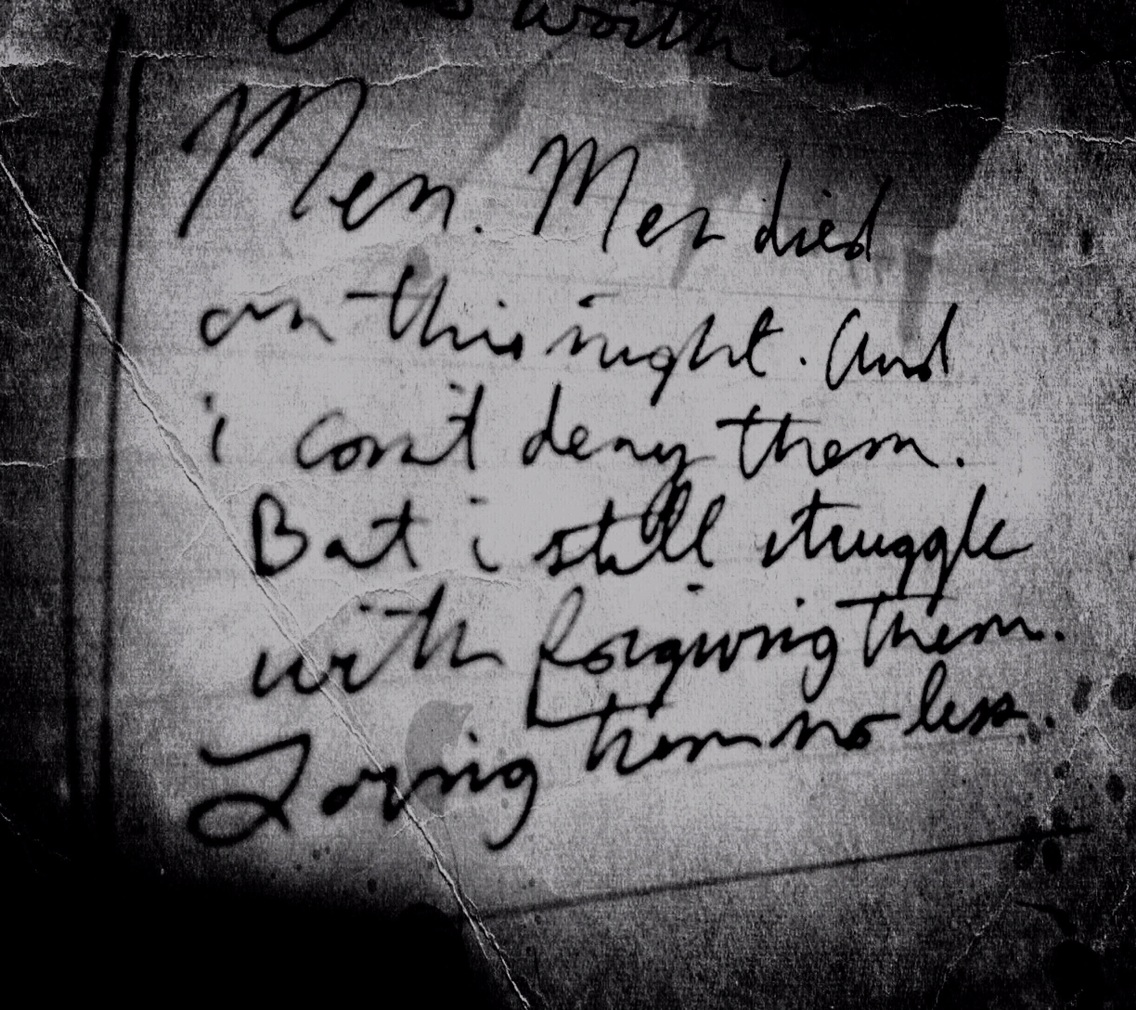 is worth a
Men. Men died
on this night. And
i can't deny them.
But i still struggle
with forgiving them.
Loving them no less.